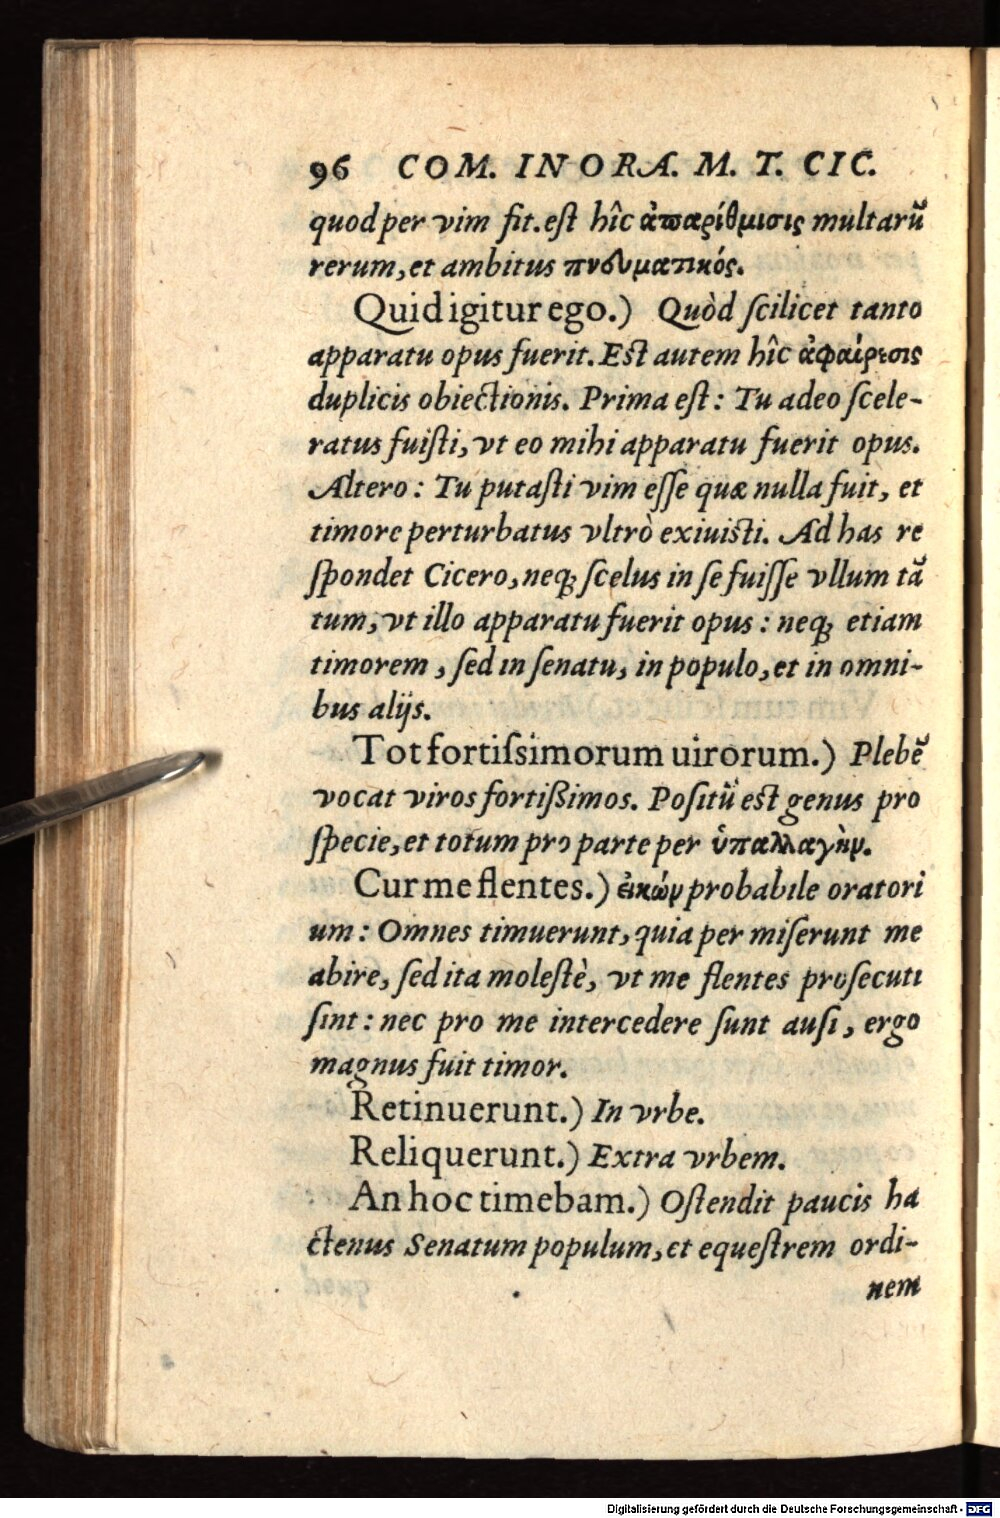 96 COM. IN ORA. M. T. CIC.
quod per vim fit. eſt hîc ἀπαρίθμισις multarũ
rerum, et ambitus πνευματικός.
Quid igitur ego.) Quòd ſcilicet tanto
apparatu opus fuerit. Eſt autem hîc ἀφαίρεσις
duplicis obiectionis. Prima eſt: Tu adeo ſcele-
ratus fuiſti, vt eo mihi apparatu fuerit opus.
Altero: Tu putaſti vim eſſe quæ nulla fuit, et
timore perturbatus vltrò exiuiſti. Ad has re
ſpondet Cicero, neq; ſcelus in ſe fuiſſe vllum tã
tum, vt illo apparatu fuerit opus: neq; etiam
timorem, ſed in ſenatu, in populo, et in omni-
bus alijs.
Tot fortiſsimorum uirorum.) Plebẽ
vocat viros fortißimos. Poſitũ eſt genus pro
ſpecie, et totum pro parte per ὑπαλλαγὴν.
Cur me flentes.) ἐικὼν probabile oratori
um: Omnes timuerunt, quia per miſerunt me
abire, ſed ita moleſtè, vt me flentes proſecuti
ſint: nec pro me intercedere ſunt auſi, ergo
magnus fuit timor.
Retinuerunt.) In vrbe.
Reliquerunt.) Extra vrbem.
An hoc timebam.) Oſtendit paucis ha
ctenus Senatum populum, et equeſtrem ordi-
nem
Digitalisierung gefördert durch die Deutsche Forschungsgemeinschaft - DFG